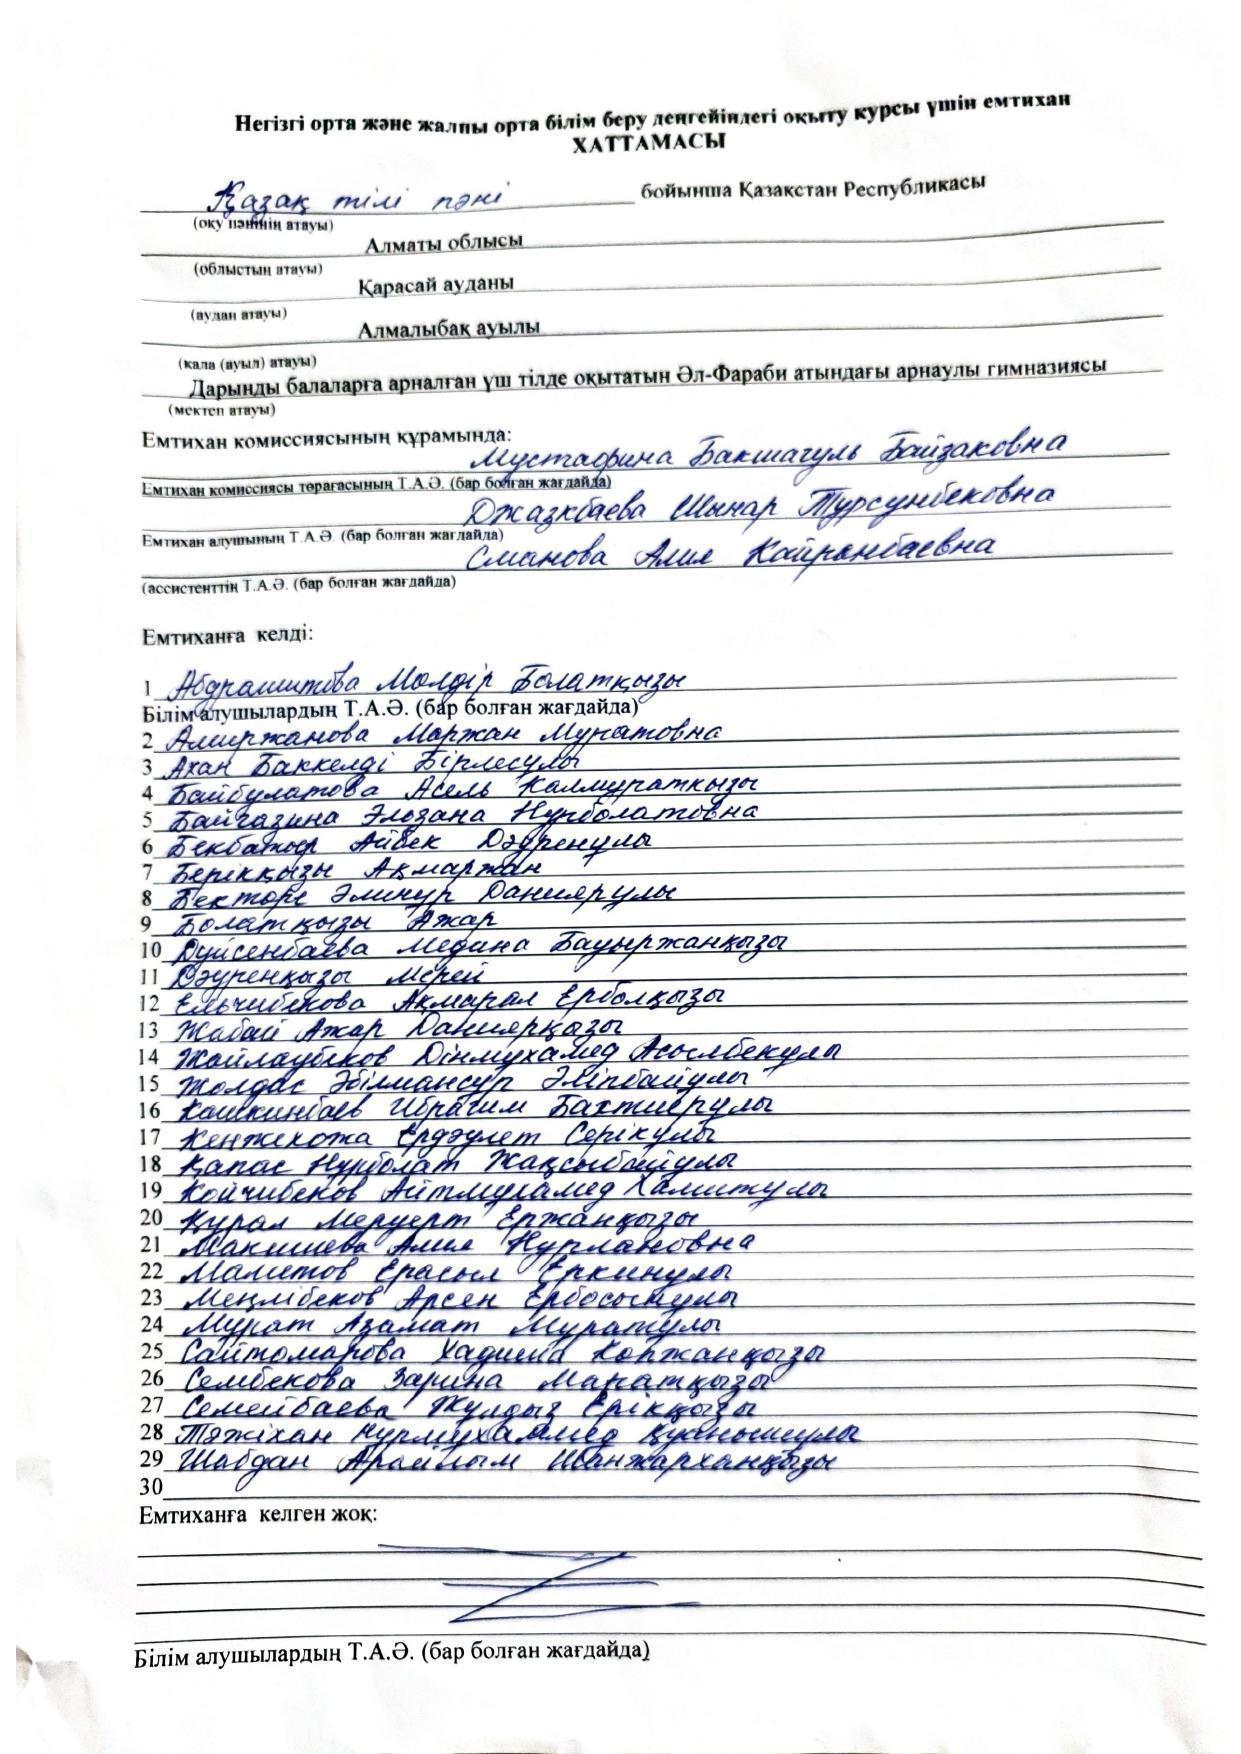 Негізгі орта және жалпы орта білім беру деңгейіндегі оқыту курсы үшін емтихан
ХАТТАМАСЫ
Қазақ тілі пәні бойынша Қазақстан Республикасы
(оқу пәнінің атауы)
Алматы облысы
(облыстың атауы)
Қарасай ауданы
(аудан атауы)
Алмалыбақ ауылы
(қала (ауыл) атауы)
Дарынды балаларға арналған үш тілде оқытатын Әл-Фараби атындағы арнаулы гимназиясы
(мектеп атауы)
Емтихан комиссиясының құрамында:
Мустафина Бакшагуль Байзаковна
Емтихан комиссиясы төрағасының Т.А.Ә. (бар болған жағдайда)
Джазкбаева Шынар Турсунбековна
Емтихан алушының Т.А.Ә. (бар болған жағдайда)
Сманова Алия Кайранбаевна
(ассистенттің Т.А.Ә. (бар болған жағдайда)
Емтиханға келді:
1 Абдрашитова Молдір Болатқызы
Білім алушылардың Т.А.Ә. (бар болған жағдайда)
2 Амиржанова Маржан Муратовна
3 Ахан Баккелді Бірлесулы
4 Байбулатова Асель Калмураткызы
5 Байгазина Элозана Нурболатовна
6 Бекбатыр Айбек Дәуренулы
7 Берікқызы Ақмаржан
8 Бекторе Әлинур Даниярулы
9 Болатқызы Ажар
10 Дүйсенбаева Медина Бауыржанқызы
11 Дәуренқызы Мерей
12 Ельчибекова Ақмарал Ерболқызы
13 Жабай Ажар Даниярқызы
14 Жайлаубеков Дінмухамед Асылбекулы
15 Жолдас Әбілмансур Әліпбайулы
16 Кашкинбаев Ибрагим Бахтиерулы
17 Кенжекожа Ердәулет Серікулы
18 Қапас Нурболат Жақсыбайулы
19 Койчибеков Айтмухамед Хамитулы
20 Құрал Меруерт Ержанқызы
21 Макишева Алия Нурлановна
22 Маметов Ерасыл Еркинулы
23 Меңлібеков Арсен Ербосынулы
24 Мурат Азамат Муратулы
25 Сайтомарова Хадиша Копжанқызы
26 Сембекова Зарина Маратқызы
27 Семейбаева Жулдыз Ерікқызы
28 Тәжіхан Нурмухаммед Қуанышулы
29 Шабдан Арайлым Шанжарханқызы
30
Емтиханға келген жоқ:
Білім алушылардың Т.А.Ә. (бар болған жағдайда)